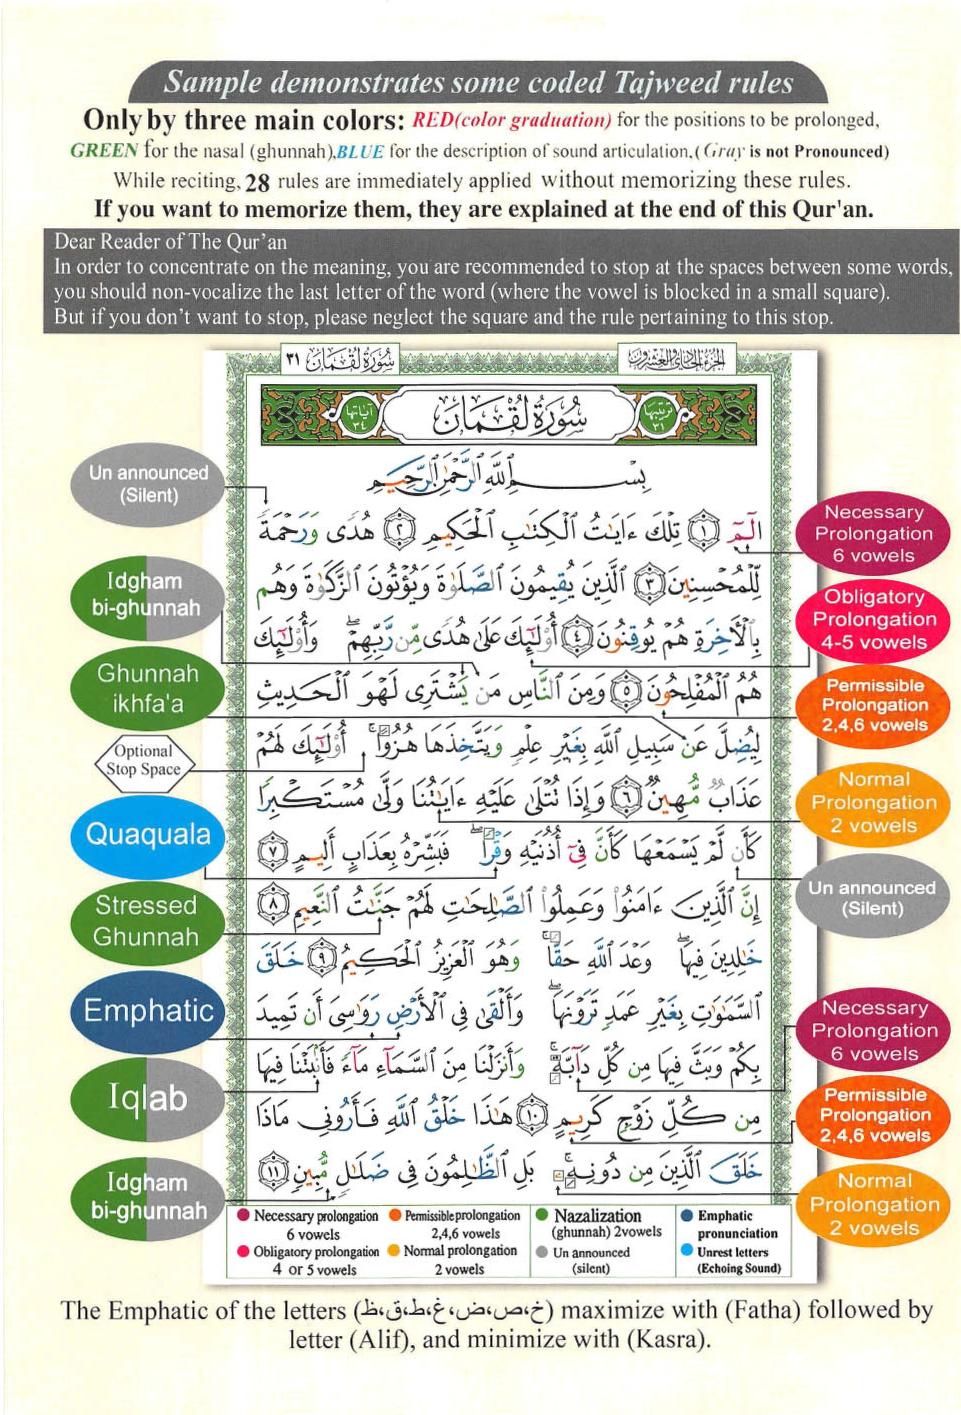 Sample demonstrates some coded Tajweed rules
Only by three main colors: RED(color graduation) for the positions to be prolonged,
GREEN for the nasal (ghunnah),BLUE for the description of sound articulation,( Gray is not Pronounced)
While reciting, 28 rules are immediately applied without memorizing these rules.
If you want to memorize them, they are explained at the end of this Qur'an.
Dear Reader of The Qur'an
In order to concentrate on the meaning, you are recommended to stop at the spaces between some words,
you should non-vocalize the last letter of the word (where the vowel is blocked in a small square).
But if you don't want to stop, please neglect the square and the rule pertaining to this stop.
الجزء الحادي والعشرون
سورة لقمان ٣١
ترتيبها ٣١
سُورَةُ لُقْمَان
آياتها ٣٤
بِسْمِ اللَّهِ الرَّحْمَٰنِ الرَّحِيمِ
الٓمٓ ١ تِلْكَ ءَايَٰتُ الْكِتَٰبِ الْحَكِيمِ ٢ هُدًى وَرَحْمَةً
لِّلْمُحْسِنِينَ ٣ الَّذِينَ يُقِيمُونَ الصَّلَوٰةَ وَيُؤْتُونَ الزَّكَوٰةَ وَهُم
بِالْأَخِرَةِ هُمْ يُوقِنُونَ ٤ أُو۟لَٰٓئِكَ عَلَىٰ هُدًى مِّن رَّبِّهِمْ وَأُو۟لَٰٓئِكَ
هُمُ الْمُفْلِحُونَ ٥ وَمِنَ النَّاسِ مَن يَشْتَرِى لَهْوَ الْحَدِيثِ
لِيُضِلَّ عَن سَبِيلِ اللَّهِ بِغَيْرِ عِلْمٍ وَيَتَّخِذَهَا هُزُوًا أُو۟لَٰٓئِكَ لَهُمْ
عَذَابٌ مُّهِينٌ ٦ وَإِذَا تُتْلَىٰ عَلَيْهِ ءَايَٰتُنَا وَلَّىٰ مُسْتَكْبِرًا
كَأَن لَّمْ يَسْمَعْهَا كَأَنَّ فِىٓ أُذُنَيْهِ وَقْرًا فَبَشِّرْهُ بِعَذَابٍ أَلِيمٍ ٧
إِنَّ الَّذِينَ ءَامَنُوا۟ وَعَمِلُوا۟ الصَّٰلِحَٰتِ لَهُمْ جَنَّٰتُ النَّعِيمِ ٨
خَٰلِدِينَ فِيهَا وَعْدَ اللَّهِ حَقًّا وَهُوَ الْعَزِيزُ الْحَكِيمُ ٩ خَلَقَ
السَّمَٰوَٰتِ بِغَيْرِ عَمَدٍ تَرَوْنَهَا وَأَلْقَىٰ فِى الْأَرْضِ رَوَٰسِىَ أَن تَمِيدَ
بِكُمْ وَبَثَّ فِيهَا مِن كُلِّ دَآبَّةٍ وَأَنزَلْنَا مِنَ السَّمَآءِ مَآءً فَأَنۢبَتْنَا فِيهَا
مِن كُلِّ زَوْجٍ كَرِيمٍ ١٠ هَٰذَا خَلْقُ اللَّهِ فَأَرُونِى مَاذَا
خَلَقَ الَّذِينَ مِن دُونِهِ بَلِ الظَّٰلِمُونَ فِى ضَلَٰلٍ مُّبِينٍ ١١
Un announced
(Silent)
Idgham
bi-ghunnah
Ghunnah
ikhfa'a
Optional
Stop Space
Quaquala
Stressed
Ghunnah
Emphatic
Iqlab
Idgham
bi-ghunnah
Necessary
Prolongation
6 vowels
Obligatory
Prolongation
4-5 vowels
Permissible
Prolongation
2,4,6 vowels
Normal
Prolongation
2 vowels
Un announced
(Silent)
Necessary
Prolongation
6 vowels
Permissible
Prolongation
2,4,6 vowels
Normal
Prolongation
2 vowels
Necessary prolongation
6 vowels
Obligatory prolongation
4 or 5 vowels
Permissible prolongation
2,4,6 vowels
Normal prolongation
2 vowels
Nazalization
(ghunnah) 2vowels
Un announced
(silent)
Emphatic
pronunciation
Unrest letters
(Echoing Sound)
The Emphatic of the letters (خ،ص،ض،غ،ط،ق،ظ) maximize with (Fatha) followed by
letter (Alif), and minimize with (Kasra).